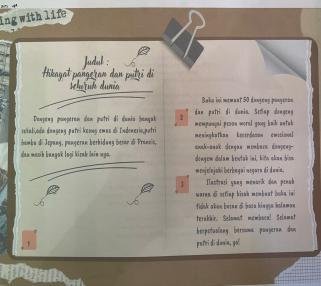 ing with life
Judul :
Hikayat pangeran dan putri di
seluruh dunia
Dongeng pangeran dan putri di dunia banyak
sekali,ada dongeng putri keong emas di Indonesia,putri
bambu di Jepang, pangeran berhidung besar di Prancis,
dan masih banyak lagi kisah lain nya.
1
Buku ini memuat 50 dongeng pangeran
2
dan putri di dunia. Setiap dongeng
mempunyai pesan moral yang baik untuk
meningkatkan kecerdasan emosional
anak-anak dengan membaca dongeng-
dongem dalam bentuk ini, kita akan bisa
menjelajahi berbagai negara di dunia.
3
Ilustrasi yang menarik dan penuh
warna di setiap kisah membuat buku ini
tidak akan bosan di baca hingga halaman
terakhir. Selamat membaca! Selamat
berpetualang bersama pangeran dan
putri di dunia, ya!